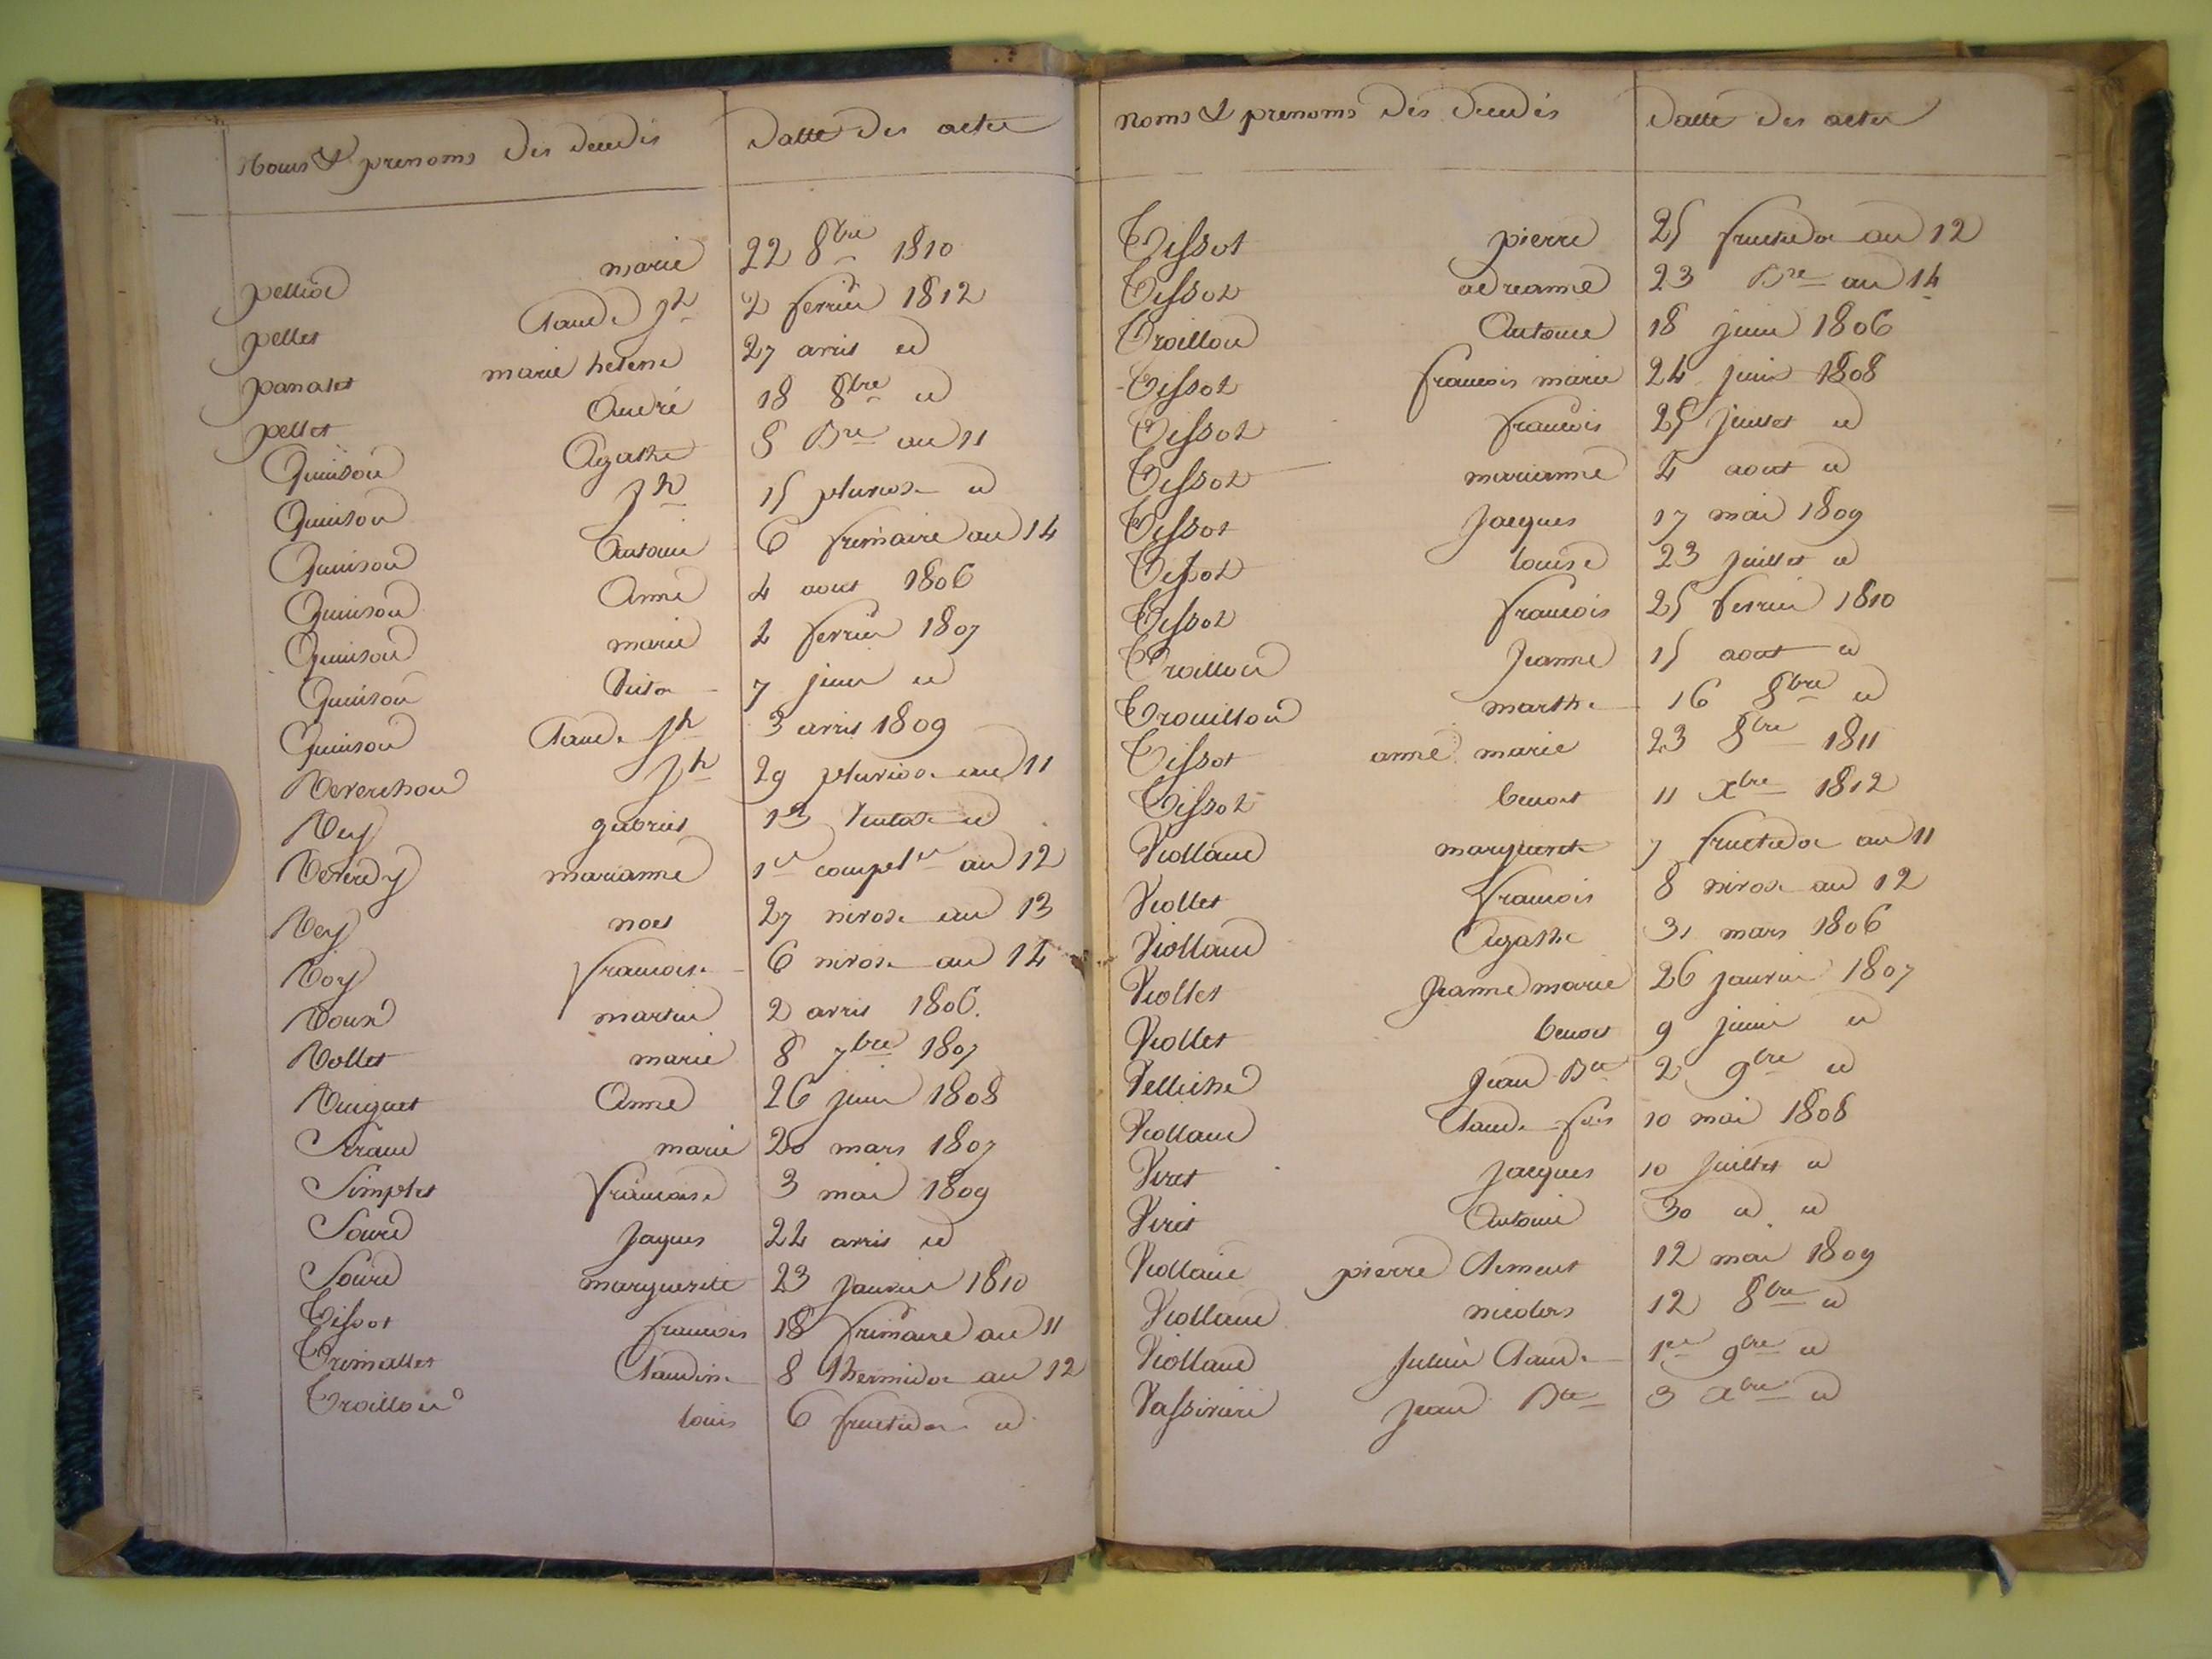 Noms & prenoms des deccdés Datte des actes
pellion marie 22 8bre 1810
pellet Claude jh 2 fevrier 1812
panalet marie helene 27 avril id
pellet André 18 8bre id
Quinson Agathe 8 Bre an 11
Quinson jh 15 pluviose id
Quinson Antoine 6 frimaire an 14
Quinson Anne 4 aout 1806
Quinson marie 2 fevrier 1807
Quinson Victor 7 juin id
Quinson Claude jh 3 avril 1809
Reverchon jh 29 pluviose an 11
Rey gabriel 13 Ventose id
Reverdy marianne 1er compelre an 12
Rey noel 27 nivose an 13
Roy francoise 6 nivose an 14
Roux martin 2 avril 1806.
Rollet marie 8 7bre 1807
Ruignet Anne 26 juin 1808
Seraud marie 20 mars 1807
Simplet francoise 3 mai 1809
Soure Jaques 22 avril id
Soure marguerite 23 janvier 1810
Tissot francois 18 frimaire an 11
Trimallet Claudine 8 thermidor an 12
Troillon louis 6 fructidor id
Noms & prenoms des deccdés Datte des actes
Tissot pierre 25 fructidor an 12
Tissot adreanne 23 Bre an 14
Troillon Antoine 18 juin 1806
Tissot francois marie 24 juin 1808
Tissot francois 25 juillet id
Tissot marianne 4 aout id
Tissot Jacques 17 mai 1809
Tissot louise 23 juillet id
Tissot francois 25 fevrier 1810
Troillon Jeanne 15 aout id
Trouillon marthe 16 8bre id
Tissot anne marie 23 8bre 1811
Tissot benoit 11 Xbre 1812
Violland marguerite 7 fructidor an 11
Viollet francois 8 nivose an 12
Violland Agathe 31 mars 1806
Viollet Jeanne marie 26 janvier 1807
Viollet benoit 9 juin id
Velluche Jean Bte 2 9bre id
Violland Claude fois 10 mai 1808
Viret Jacques 10 juillet id
Viret Antoine 30 id id
Violland pierre Clement 12 mai 1809
Violland nicolas 12 8bre id
Violland Julien Claude 1er 9bre id
Vassivieri Jean Bte 3 Xbre id